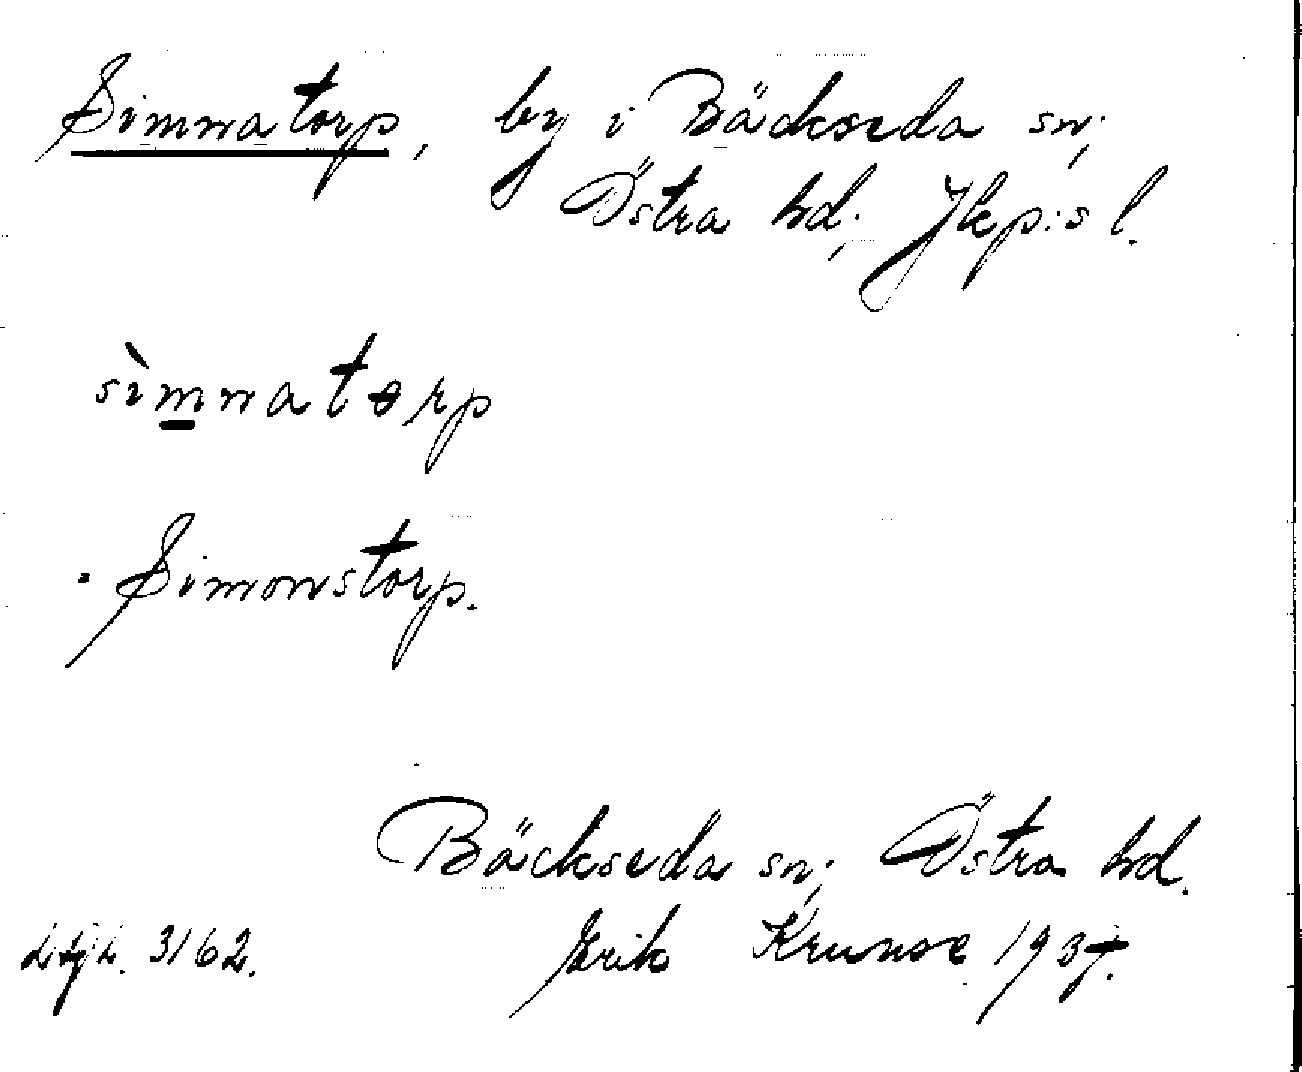 Simnatorp, by i Bäckseda sn;
Östra hd; Jkp:s l.
sìmnatorp
Simonstorp.
Bäckseda sn; Östra hd.
3162. Erik Krunse 1937.